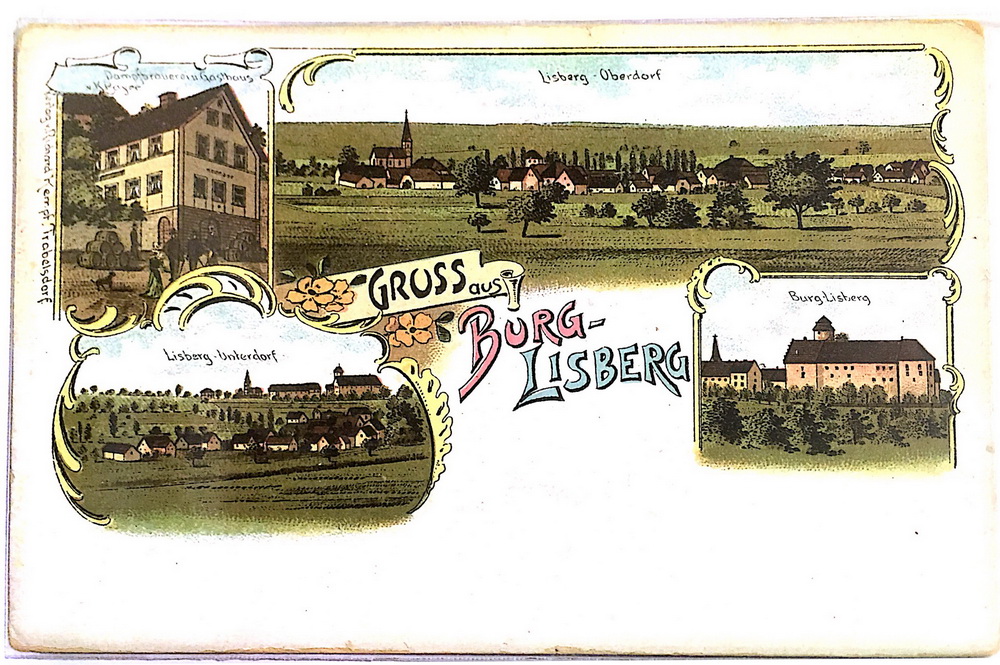 Dampfbrauerei u. Gasthaus
Lisberg-Oberdorf
GRUSS aus
BURG-
LISBERG
Burg-Lisberg
Lisberg-Unterdorf
Trabelsdorf